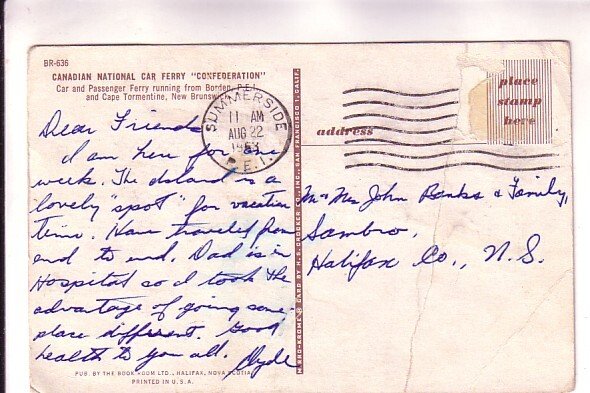 BR-636
CANADIAN NATIONAL CAR FERRY "CONFEDERATION"
Car and Passenger Ferry running from Borden, P.E.I.
and Cape Tormentine, New Brunswick
SUMMERSIDE
11 AM
AUG 22
1963
P.E.I.
place
stamp
here
address
Dear Friends
I am here for one
week. The Island is a
lovely "spot" for vacation
time. Have traveled from
end to end. Dad is in
Hospital so I took the
advantage of going some-
place different. Good
health to you all. Clyde
Mr Mrs John Banks & Family,
Sambro,
Halifax Co., N.S.
CARD BY H. S. CROCKER CO., INC., SAN FRANCISCO 1, CALIF.
PUB. BY THE BOOK ROOM LTD., HALIFAX, NOVA SCOTIA
PRINTED IN U.S.A.